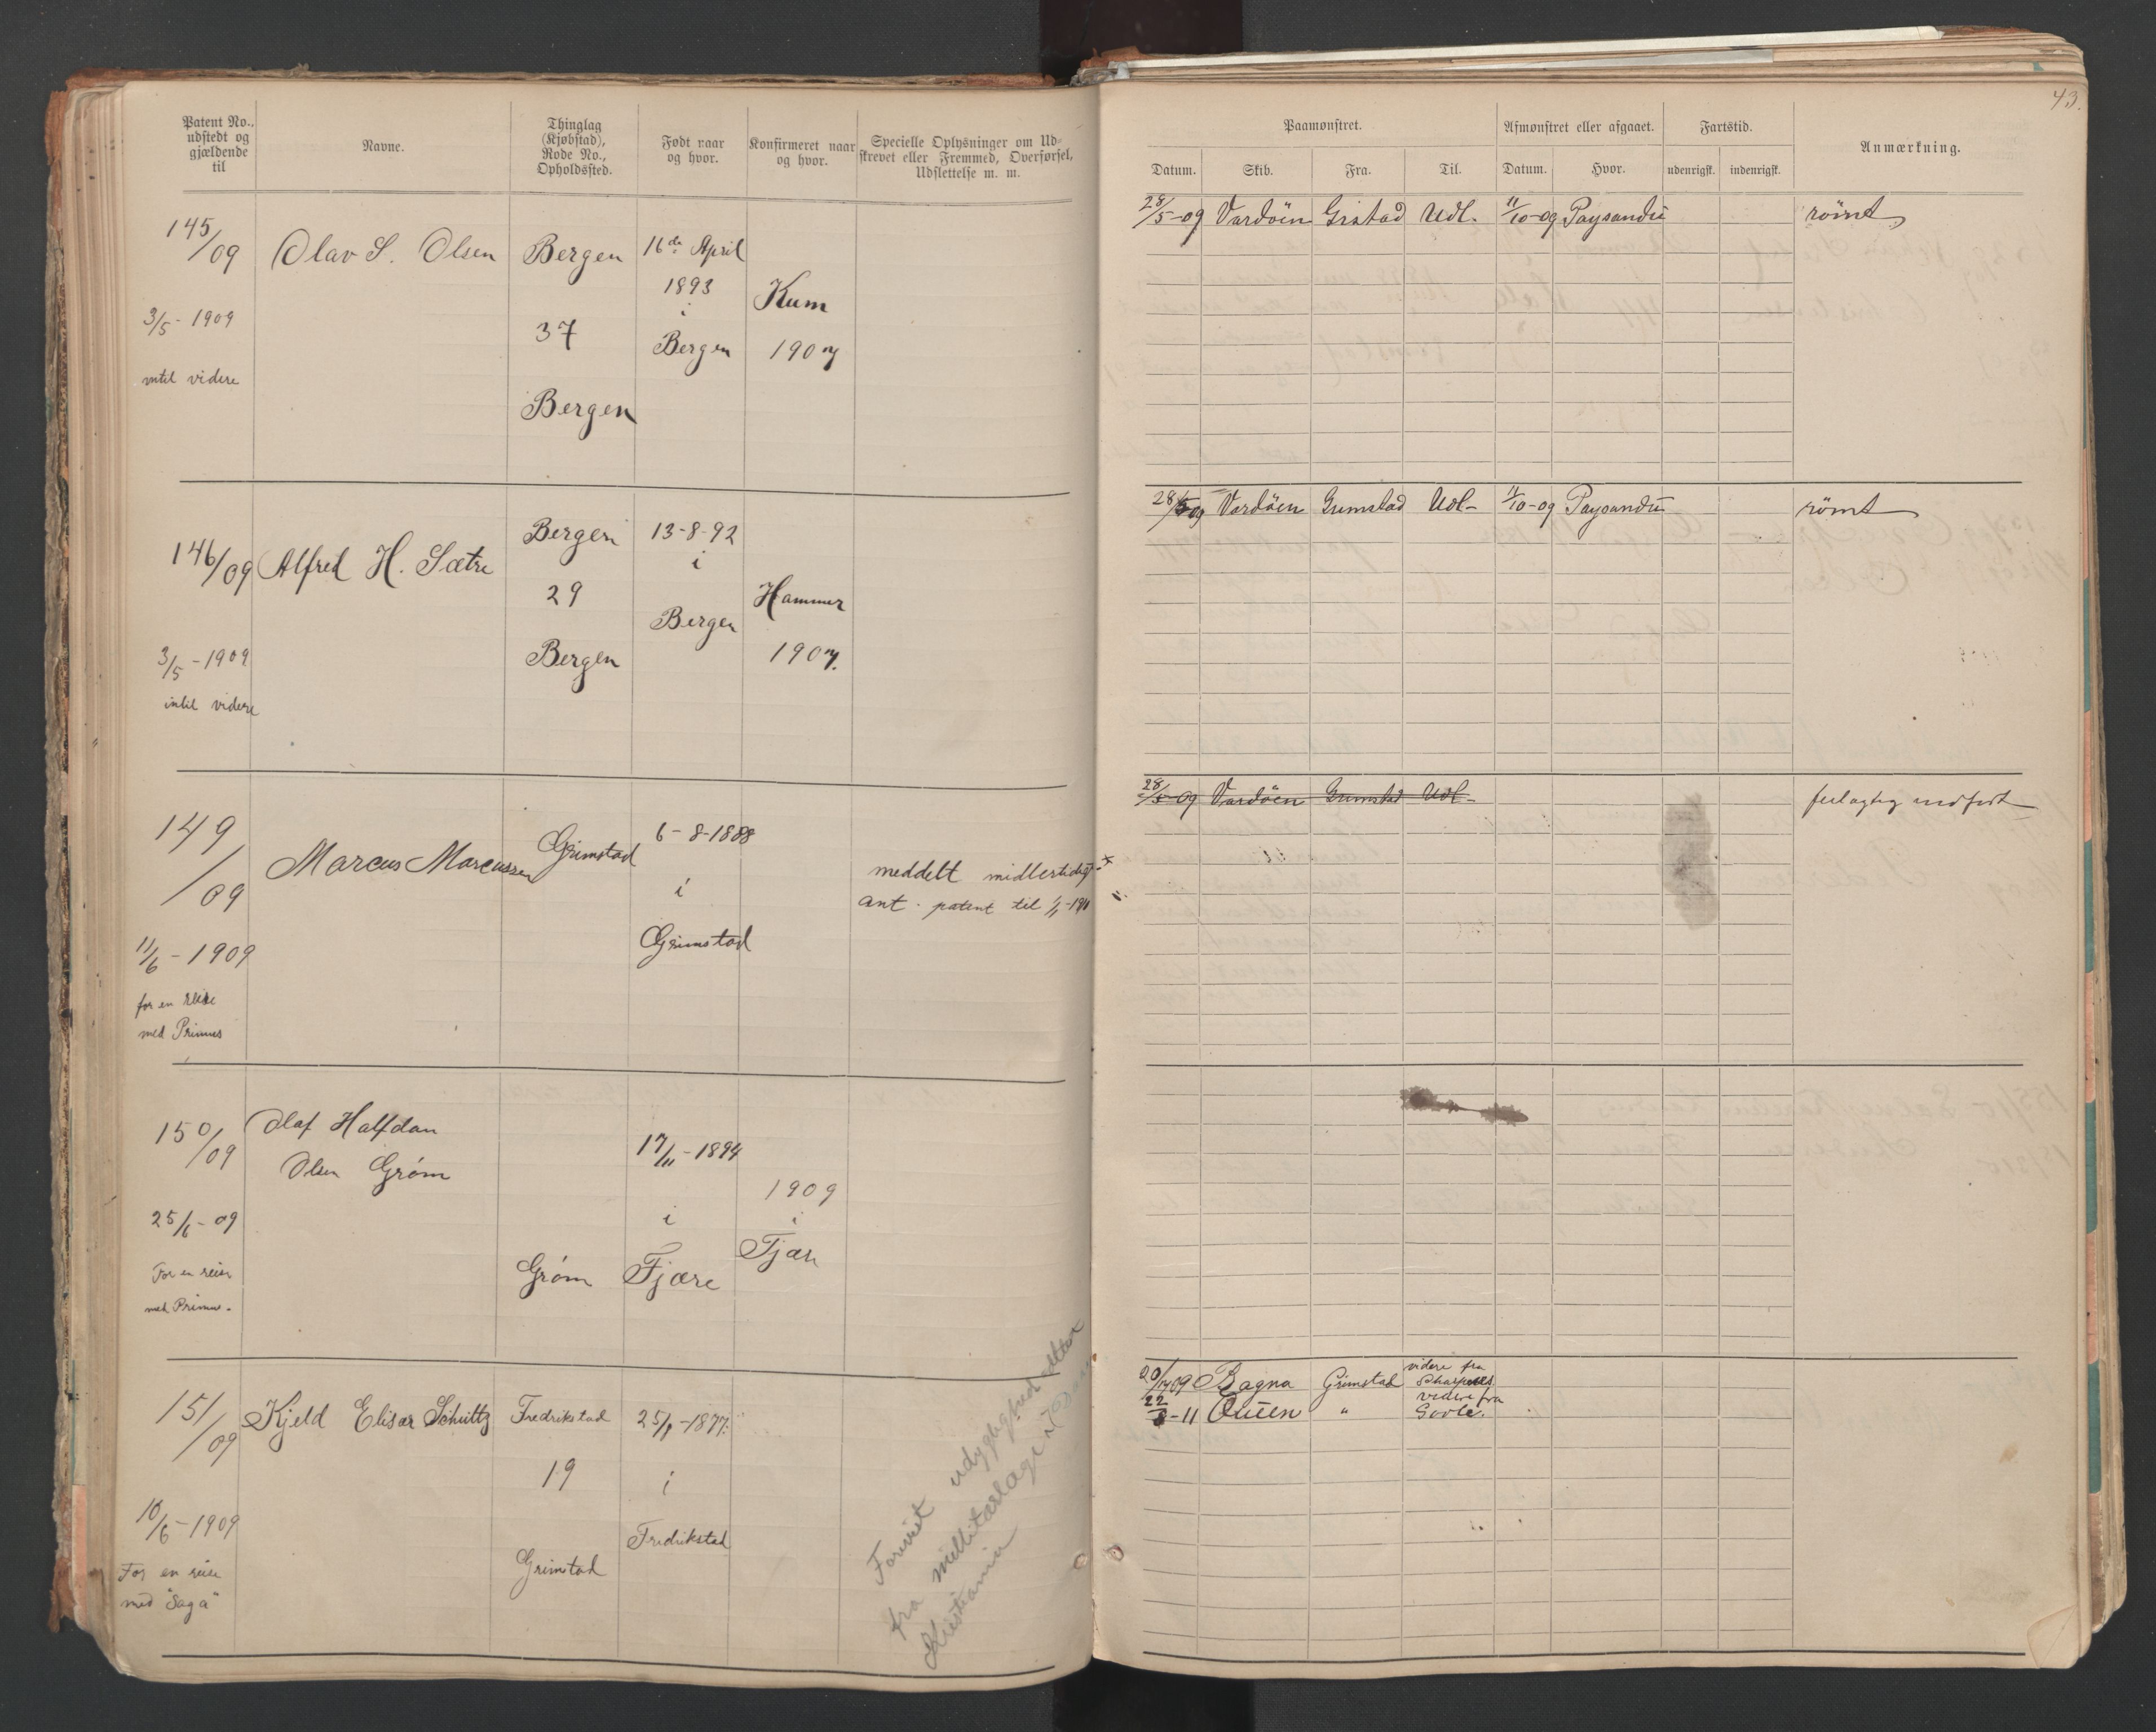 Patent No.,
udstedt og
gjældende
til
Navne.
Thinglag
(Kjøbstad),
Rode No.,
Opholdssted.
Født naar
og hvor.
Konfirmeret naar
og hvor.
Specielle Oplysninger om Ud-
skrevet eller Fremmed, Overførsel,
Udslettelse m. m.
145/09
3/5 - 1909
intil videre
Olav S. Olsen
Bergen
37
Bergen
16de April
1893
i
Bergen
Kum
1907
146/09
3/5 - 1909
intil videre
Alfred H. Sætre
Bergen
29
Bergen
13-8-92
i
Bergen
Hammer
1907.
149/09
11/6 - 1909
for en reise
med Primus
Marcus Marcussen
Grimstad
6-8-1888
i
Grimstad
meddelt midlertidigt
ant. patent til
150/09
25/6 - 09
For en reise
med Primus.
Olaf Halfdan
Olsen Grøm
Grøm
17/11 - 1894
i
Fjære
1909
i
Fjære
151/09
10/6 - 1909
For en reise
med "Saga"
Kjeld Elisar Schultz
Fredrikstad
19
Grimstad
25/1 - 1877.
i
Fredrikstad
fra militærlæge i
Kristiania
43.
Paamønstret.
Afmønstret eller afgaaet.
Fartstid.
Anmærkning.
Datum.
Skib.
Fra.
Til.
Datum.
Hvor.
udenrigsk.
indenrigsk.
28/5-09 Vardöen Gristad Udl. 11/10-09 Paysandú römt
28/5 09 Vardöen Grimstad Udl- 11/10-09 Paysandú römt
28/5-09 Vardöen Grimstad Udl- feilagtig indført
videre fra
20/7 09 Ragna Grimstad
videre fra
22/8-11 Queen " Goole.